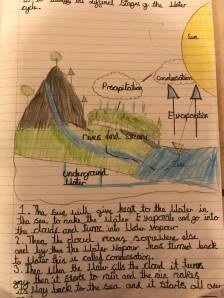 the different stages of the Water
cycle.
Sun
Condensation
Precipitation
Evaporation
rivers and streams
Sea
underground
Water
1. The sun will give heat to the Water in
the sea, to make the Water Evaporate and go into
the clouds and turns into Water vapour.
2. Then the cloud moves somewhere else
and by then the Water Vapour has turned back
to Water this is called condensation.
3. Then When the Water fills the cloud it turns
grey then it starts to rain and the rain makes
way back to the sea and it starts all over